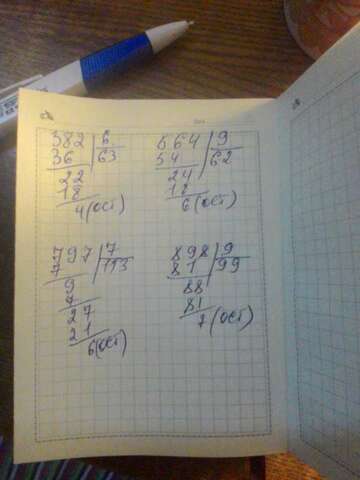 382 6
36 63
22
18
4 (ост)
564 9
54 62
24
18
6 (ост)
797 7
7 113
9
7
27
21
6 (ост)
898 9
81 99
88
81
7 (ост)